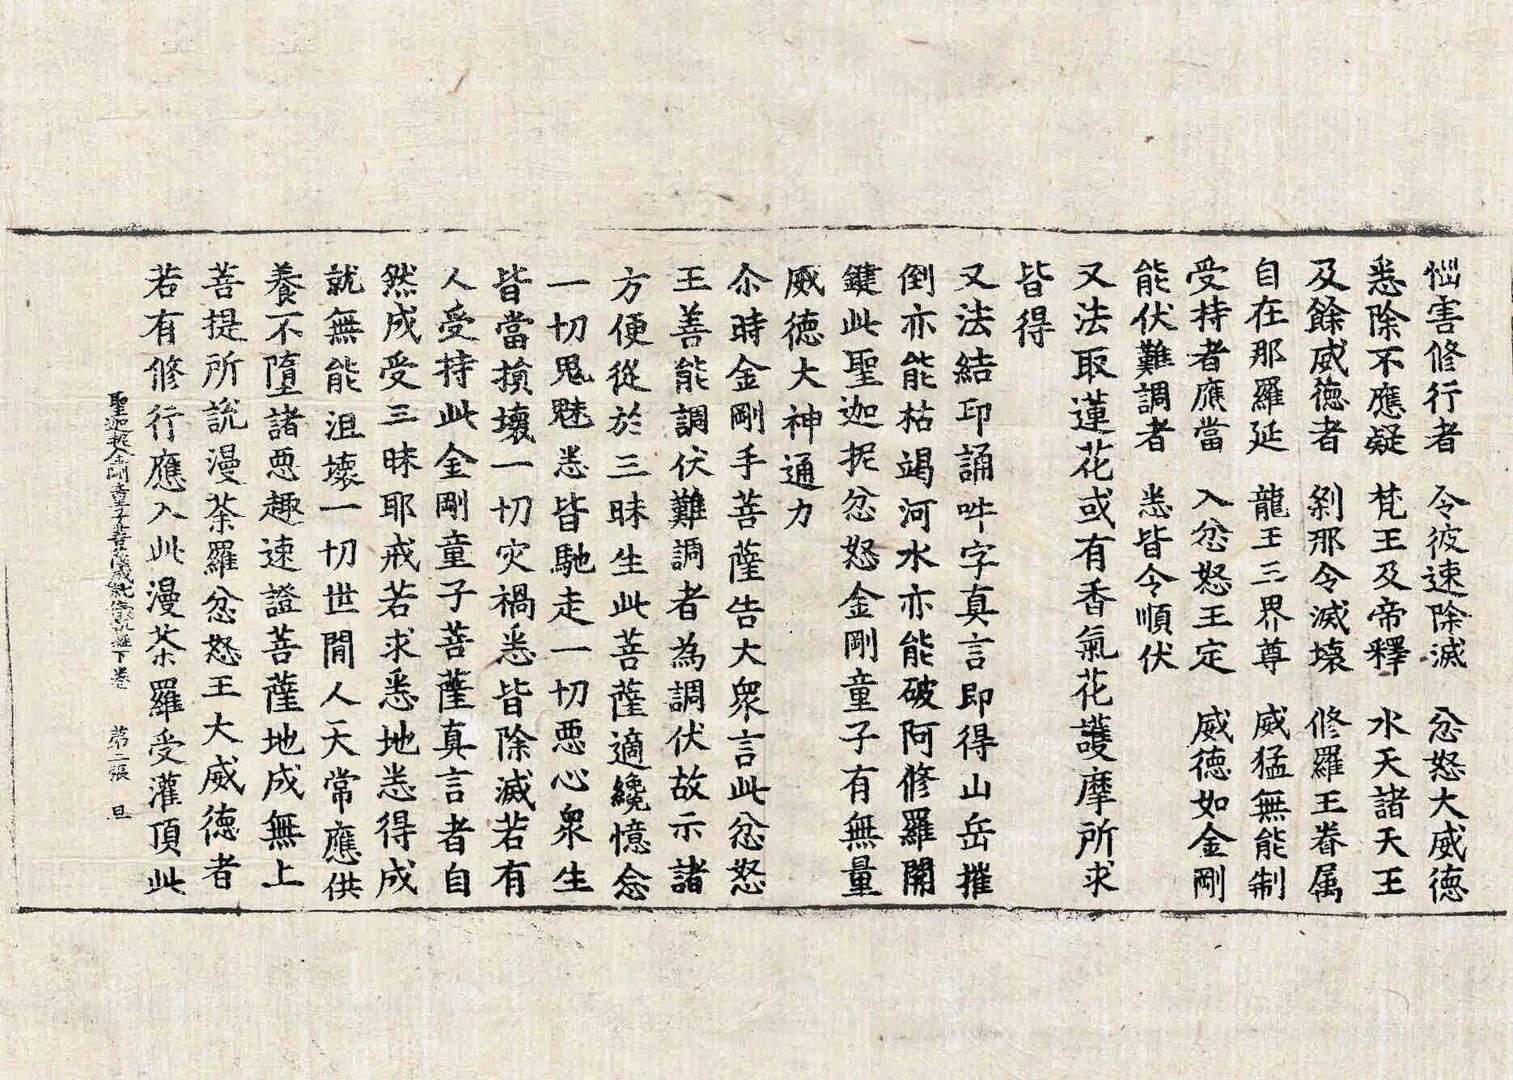 惱害修行者　令彼速除滅　忿怒大威德
悉除不應疑　梵王及帝釋　水天諸天王
及餘威德者　剎那令滅壞　修羅王眷属
自在那羅延　龍王三界尊　威猛無能制
受持者應當　入忿怒王定　威德如金剛
能伏難調者　悉皆令順伏
又法取蓮花或有香氣花護摩所求
皆得
又法結印誦吽字真言即得山岳摧
倒亦能枯竭河水亦能破阿修羅關
鍵此聖迦抳忿怒金剛童子有無量
威德大神通力
尒時金剛手菩薩告大眾言此忿怒
王善能調伏難調者為調伏故示諸
方便從於三昧生此菩薩適纔憶念
一切鬼魅悉皆馳走一切惡心眾生
皆當損壞一切灾禍悉皆除滅若有
人受持此金剛童子菩薩真言者自
然成受三昧耶戒若求悉地悉得成
就無能沮壞一切世間人天常應供
養不墮諸惡趣速證菩薩地成無上
菩提所說漫荼羅忿怒王大威德者
若有修行應入此漫茶羅受灌頂此
聖迦抳金剛童子菩薩成就儀軌經下卷　第二張　旦